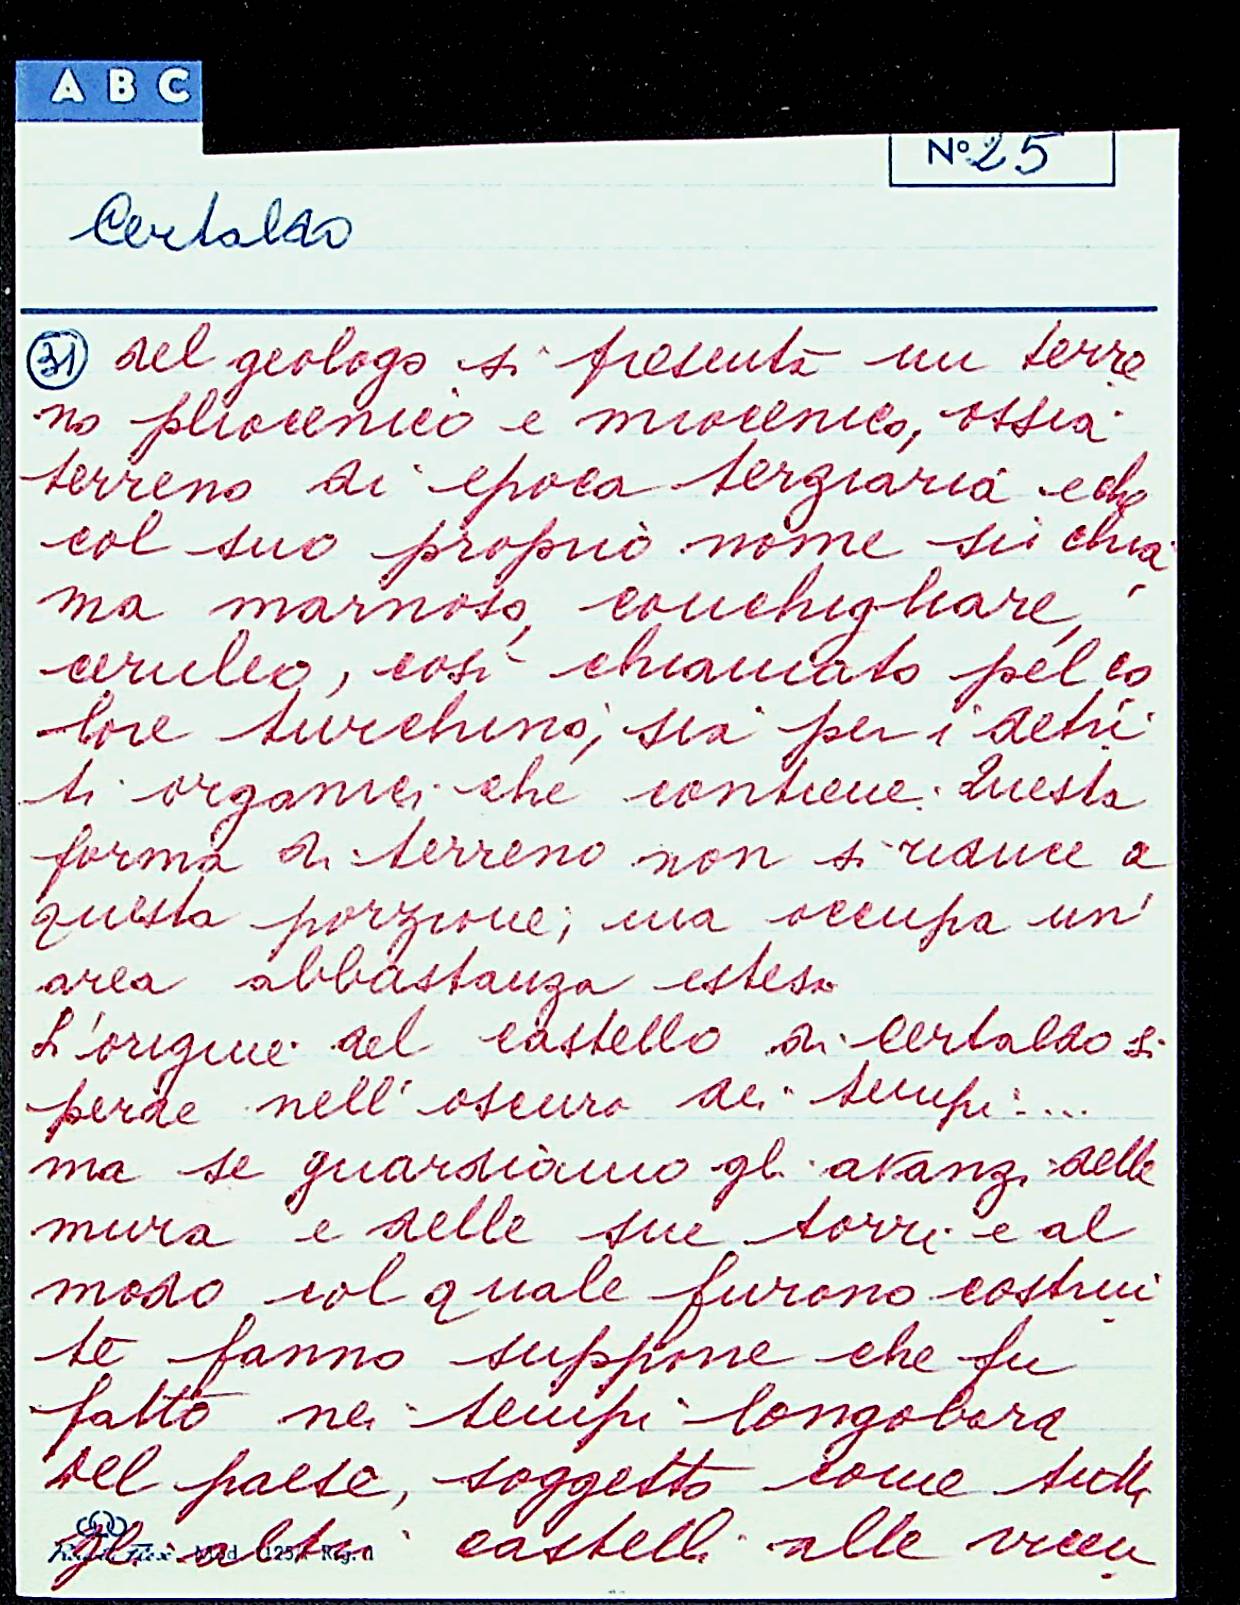 A B C
Nº 25
Certaldo
31 del geologo si presenta un terre
no pliocenico e miocenico, ossia
terreno di epoca terziaria e che
col suo proprio nome si chia
ma marnoso, conchigliare,
ceruleo, così chiamato pel co
lore turchino, sia per i detri
ti organici che contiene. Questa
forma di terreno non si riduce a
questa porzione; ma occupa un'
area abbastanza estesa
L'origine del castello di Certaldo si
perde nell'oscuro dei tempi....
ma se guardiamo gli avanzi delle
mura e delle sue torri e al
modo col quale furono costrui
te fanno suppone che fu
fatto nei tempi longobard
Del paese, soggetto come tutti
gli altri castelli alle vicen
Mod. 125/ Rig. n